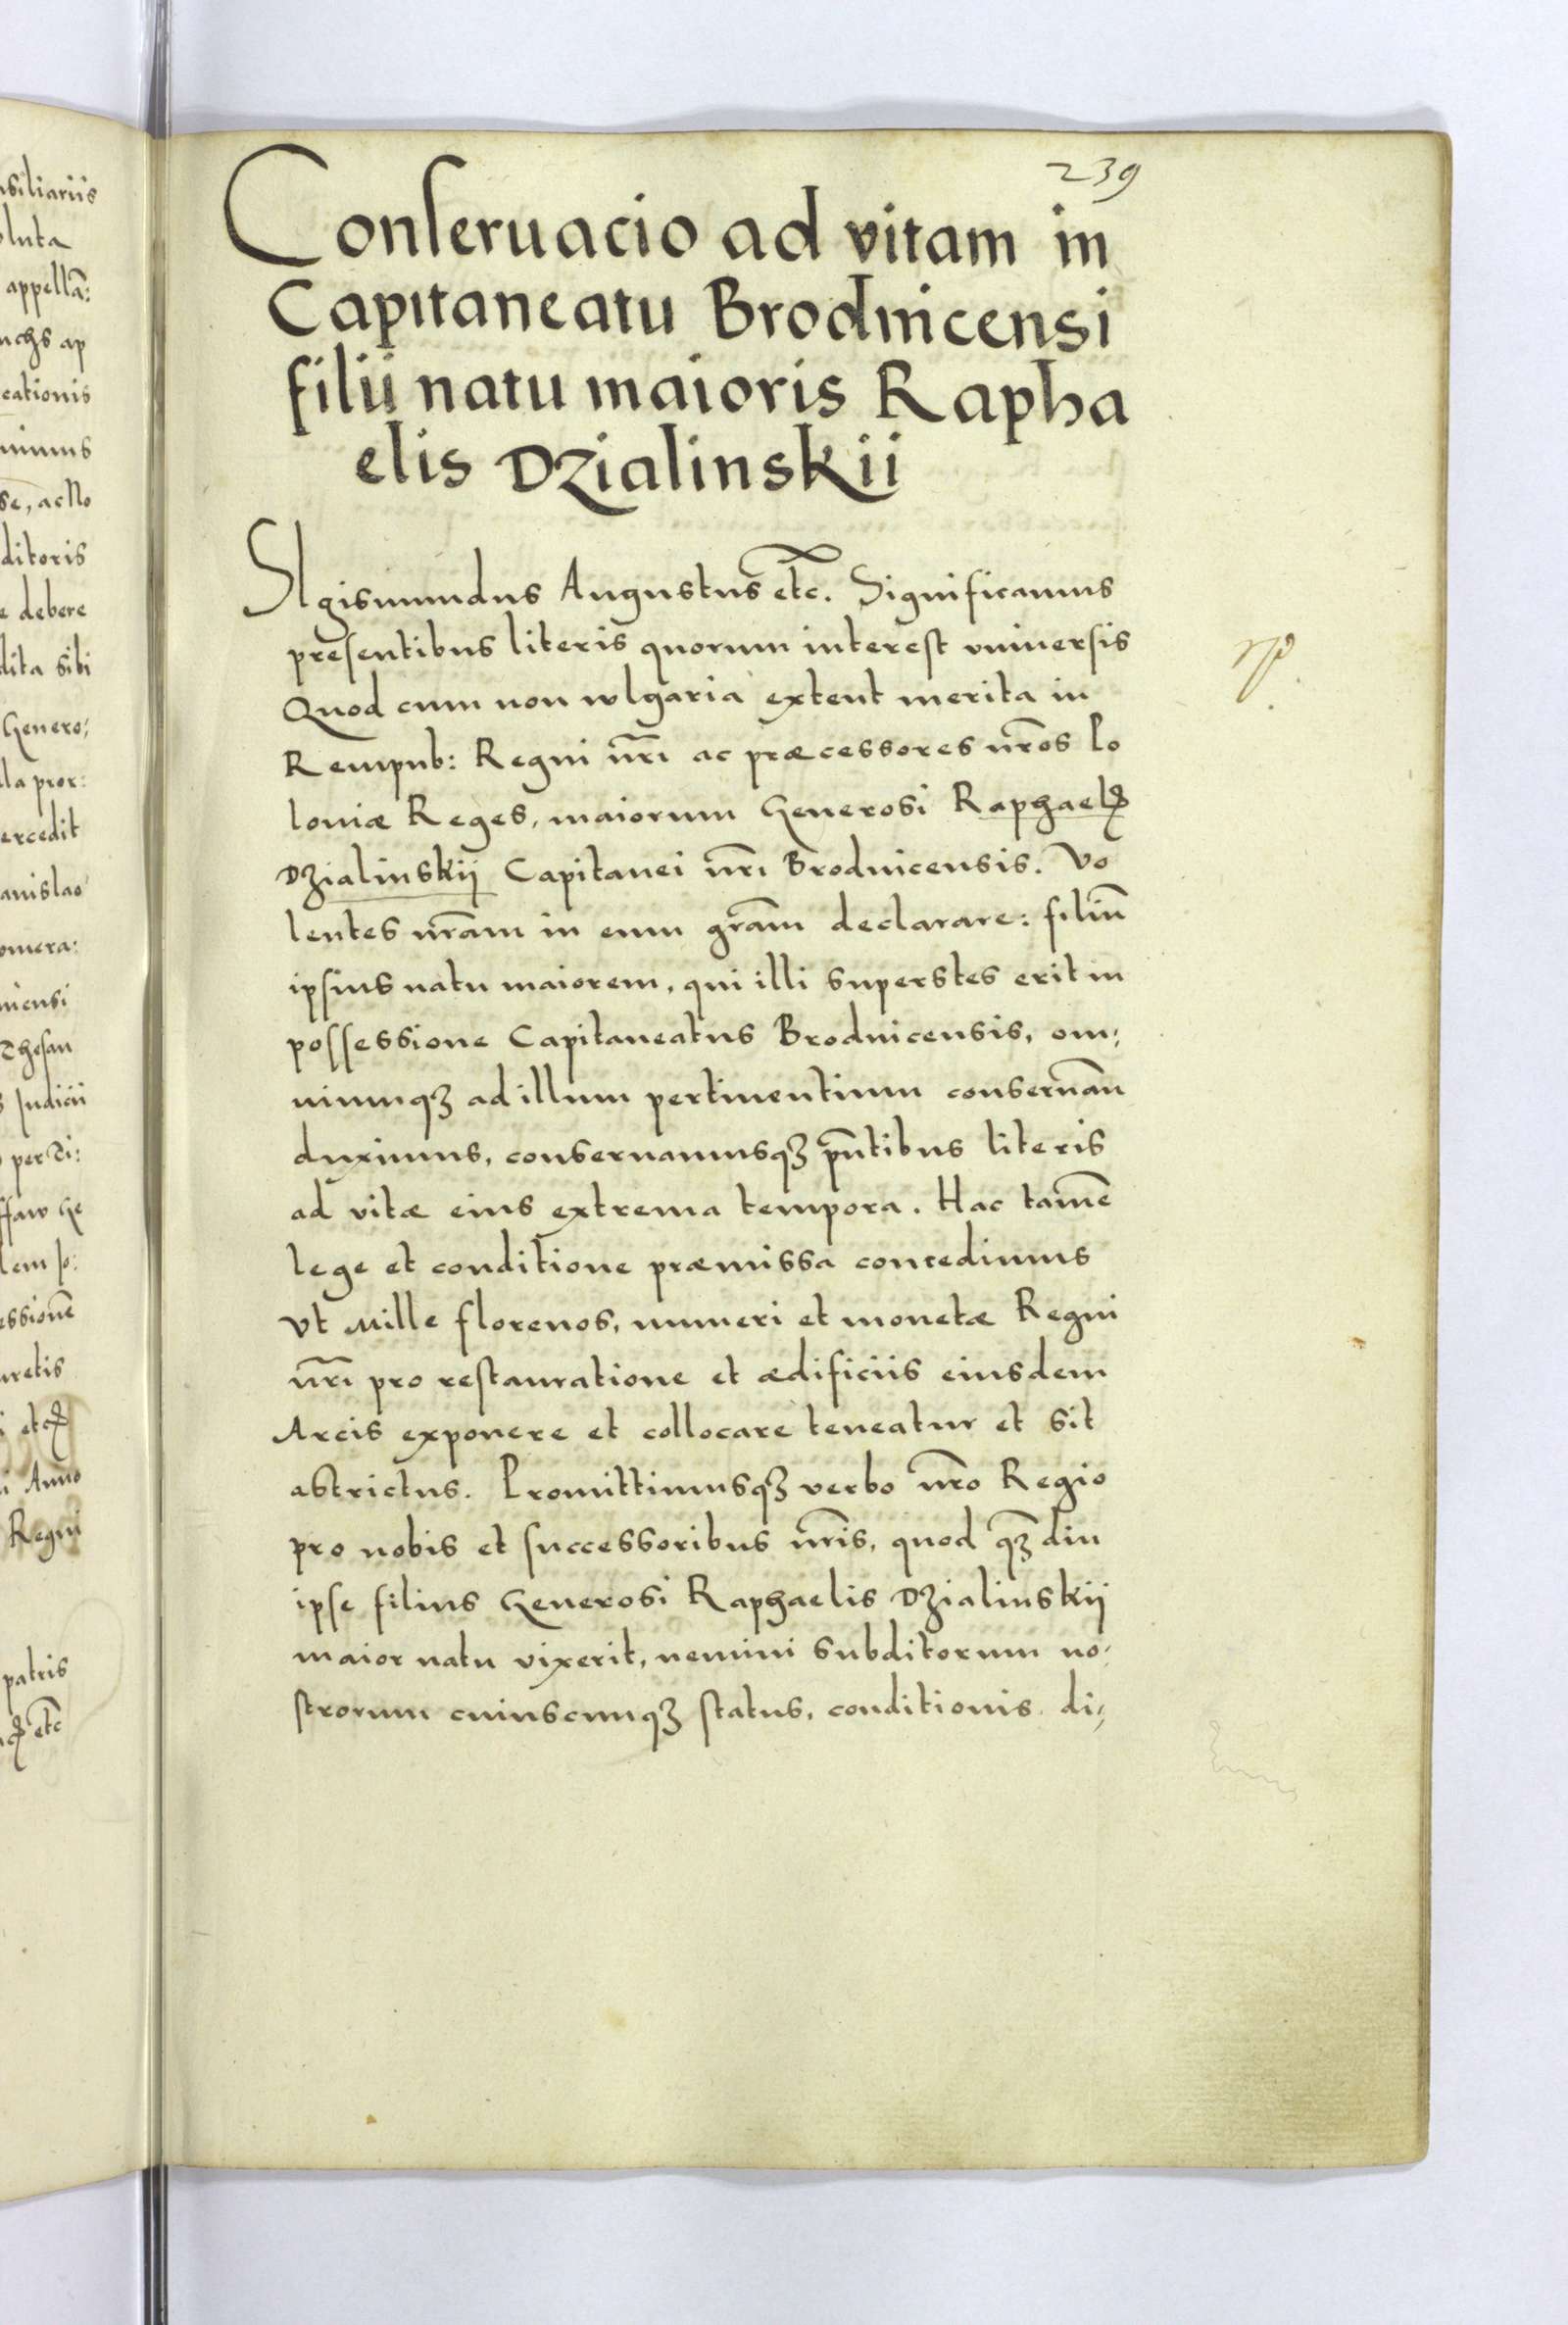 239
Conseruacio ad vitam in
Capitaneatu Brodnicensi
filii natu maioris Rapha
elis Dzialinskii
SIgismundus Augustus etc. Significamus
presentibus literis quorum interest vniuersis
Quod cum non wlgaria extent merita in
Rempub: Regni nr̃i ac præcessores nr̃os Po
loniæ Reges, maiorum Generosi Raphaelis
Dzialinskii Capitanei nr̃i Brodnicensis. Vo
lentes nr̃am in eum gr̃am declarare: filiũ
ipsius natu maiorem, qui illi superstes erit in
possessione Capitaneatus Brodnicensis, om,
niumqʒ ad illum pertinentium conseruañ
duximus, conseruamusqʒ pñtibus literis
ad vitæ eius extrema tempora. Hac tamẽ
lege et conditione præmissa concedimus
Vt Mille florenos, numeri et monetæ Regni
nr̃i pro restauratione et ædificiis eiusdem
Arcis exponere et collocare teneatur et sit
astrictus. Promittimusqʒ verbo nr̃o Regio
pro nobis et successoribus nr̃is, quod qʒ̃diu
ipse filius Generosi Raphaelis Dzialinskii
maior natu vixerit, nemini subditorum no,
strorum cuiuscunqʒ status, conditionis di,
nsiliariis
oluta
appellã:
uchs ap
cationis
nimus
se, ac No
ditoris
e debere
dita sibi
Genero,
lla pror:
ercedit
anislao
omera:
nensi
Thesau
Judicii
per Di:
ffaw Ge
lem Jo:
essionẽ
uretis
i etc
i Anno
Regni
patris
etc